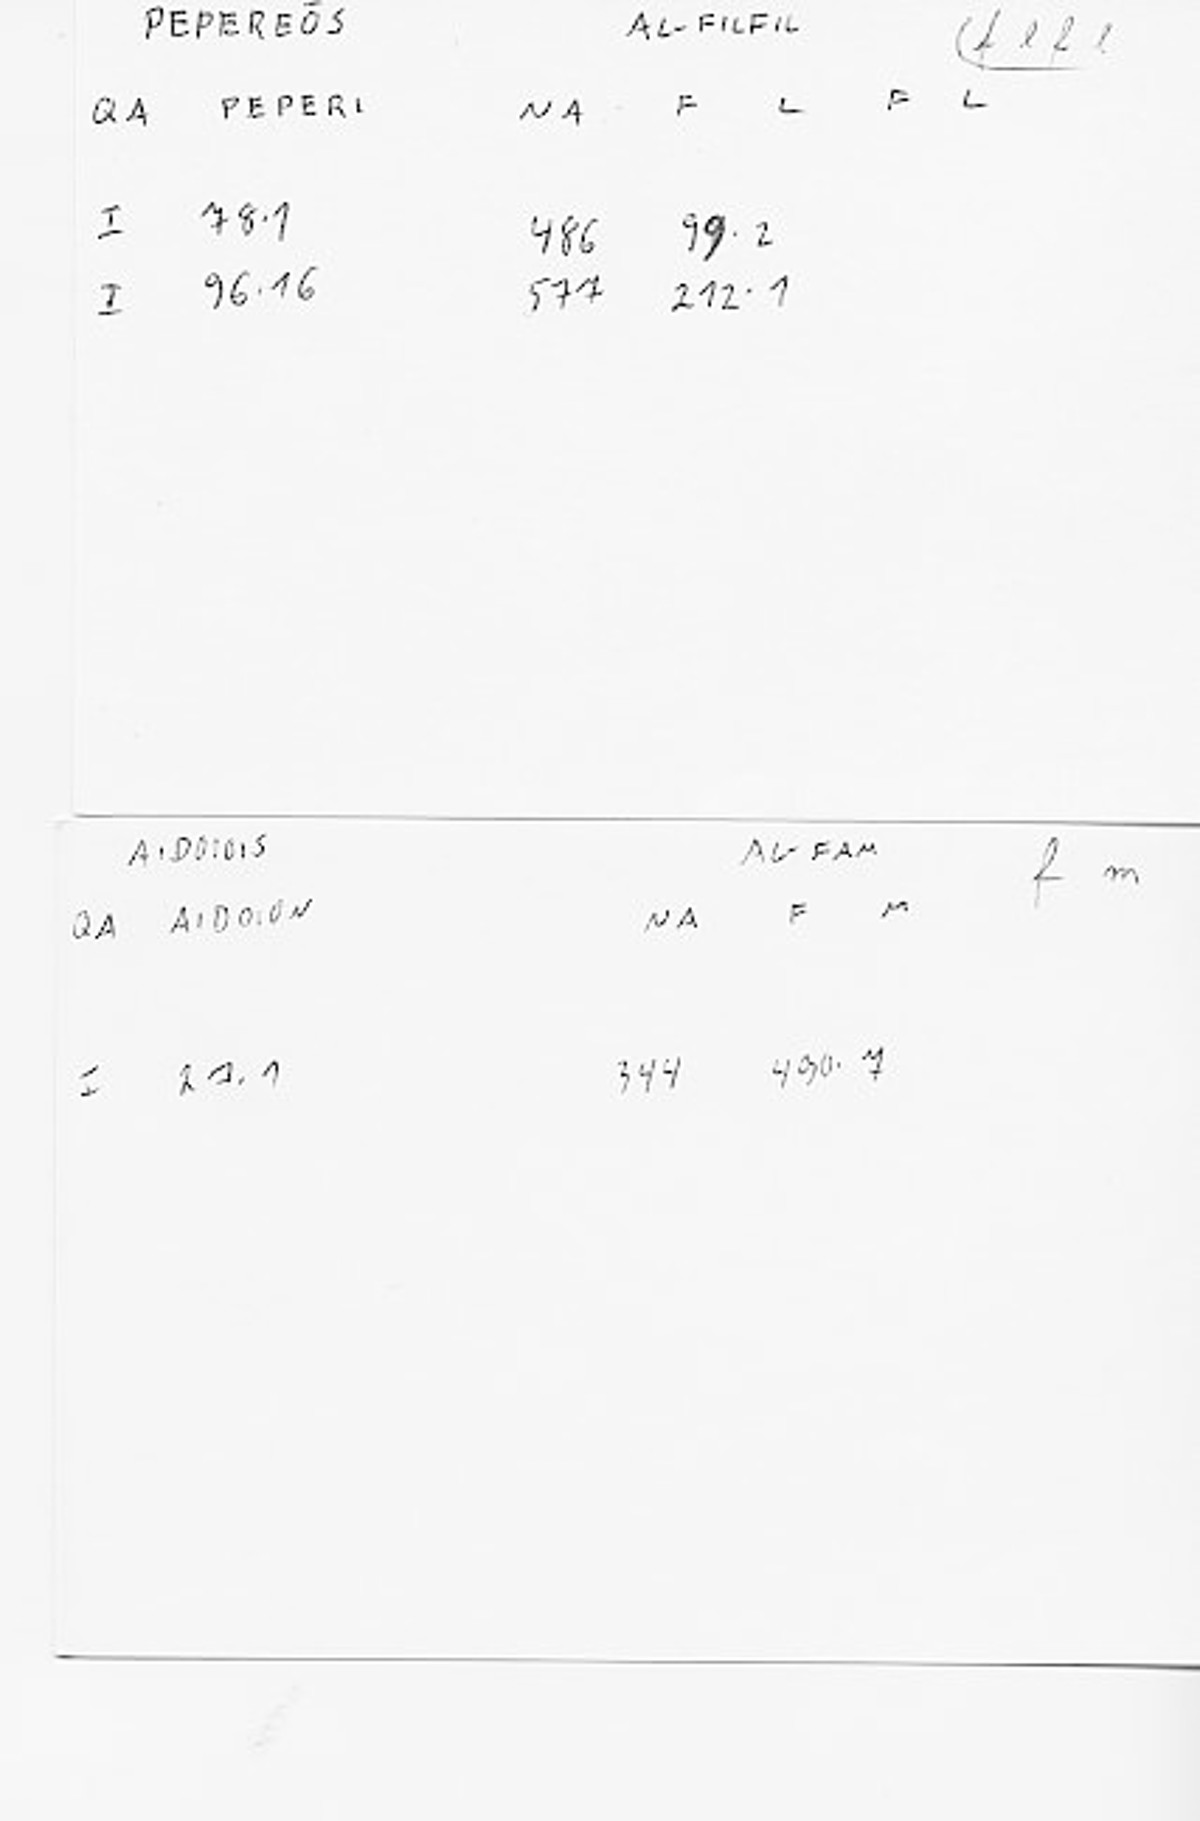 PEPEREŌS AL-FILFIL (f l f l
QA PEPERI NA F L F L
I 78.1 486 99.2
I 96.16 577 212.1
AIDOIOIS AL-FAM f m
QA AIDOION NA F M
I 27.1 344 490.7